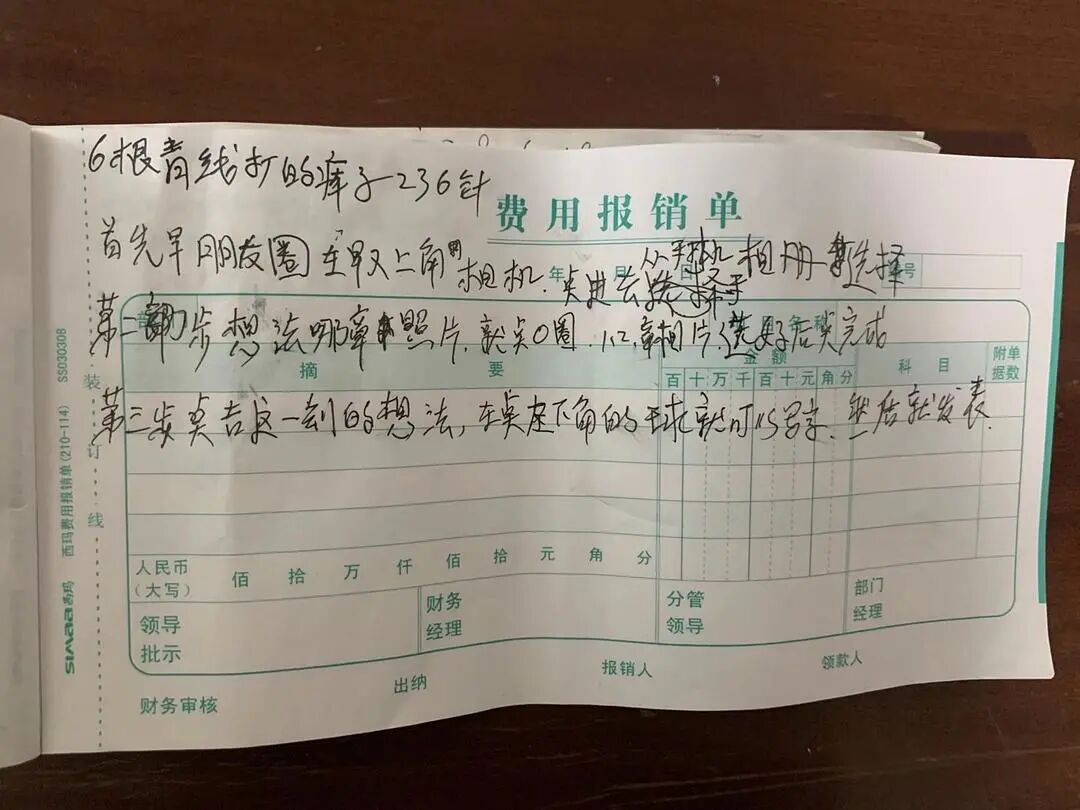 6根青线打的裤子236针
费用报销单
首先早朋友圈在早又上角相机.关进去从手机相册选择
年 月 日 号
第二步想法哪章照片.就点O圈.1.2.章相片选好后关完成
摘 要
金额
科目
附单据数
百十万千百十元角分
第三步关击这一刻的想法,在关左下角的球就可以写字.然后就发表.
人民币(大写) 佰 拾 万 仟 佰 拾 元 角 分
领导批示
财务经理
分管领导
部门经理
财务审核
出纳
报销人
领款人
装订线
西玛费用报销单(210-114) SS030308
simaa西玛